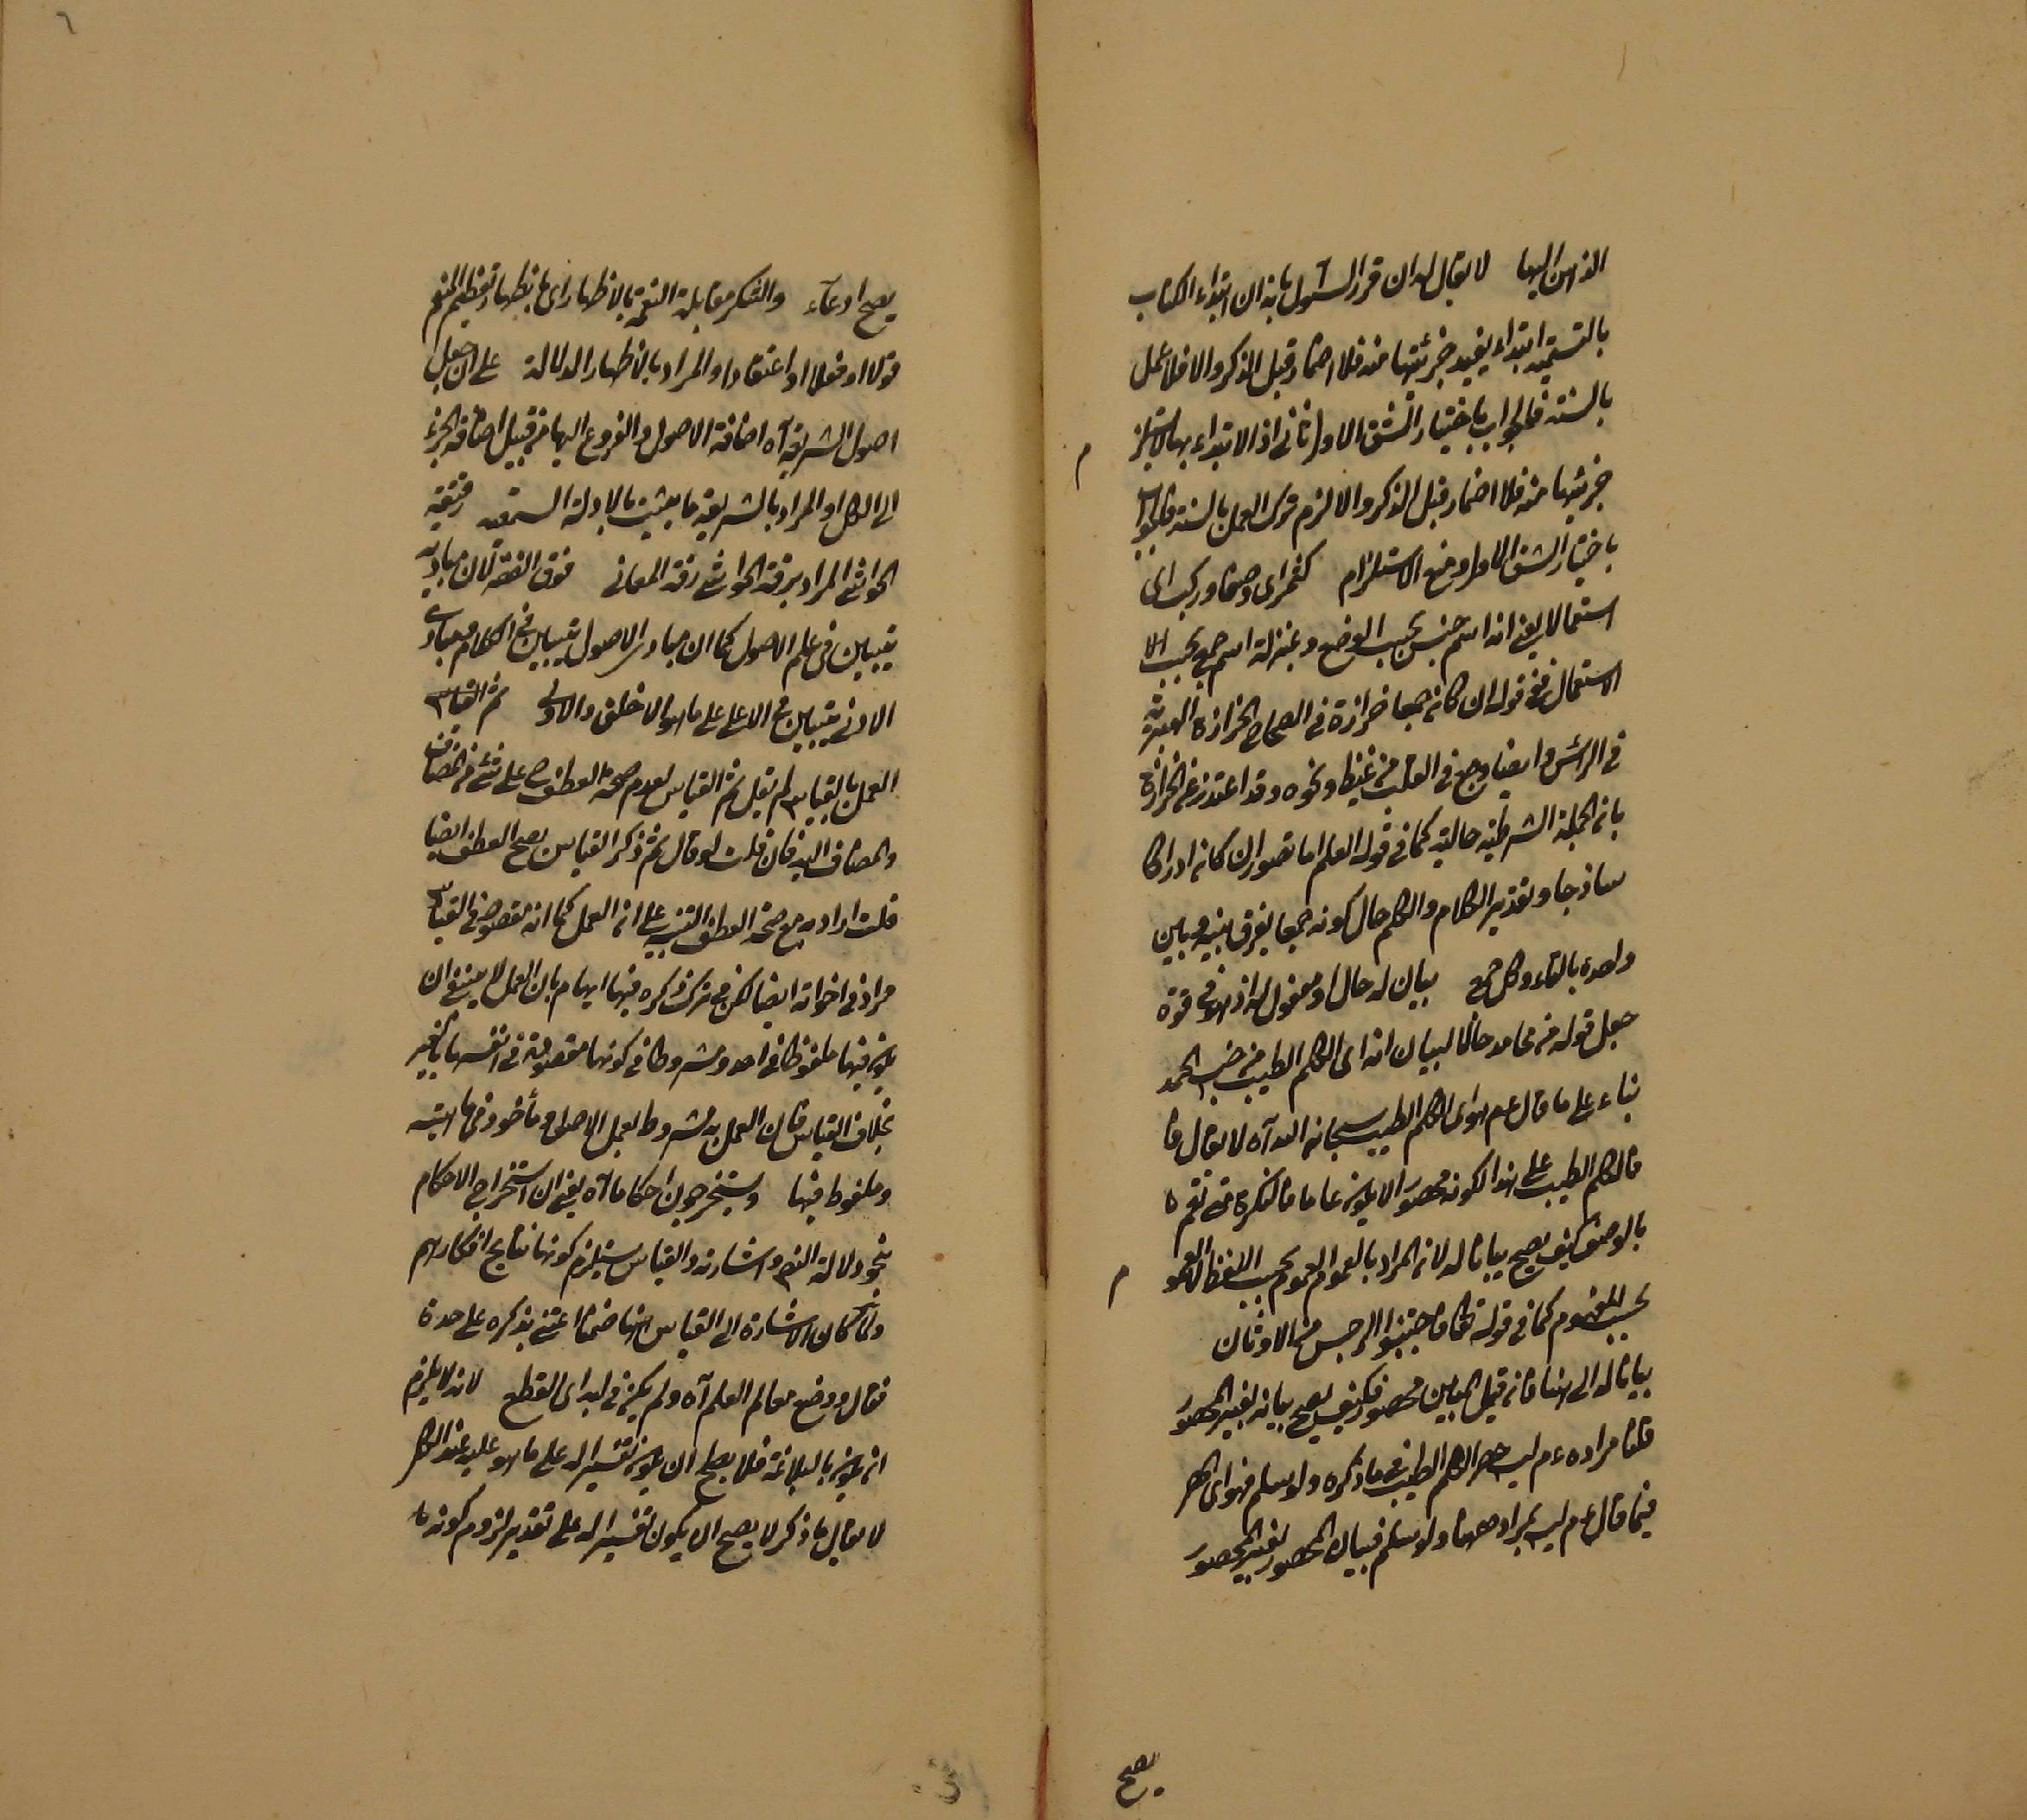 الذهن اليها لا يقال له ان قرر السئول بانه ان ابتداء الكتاب
بالتسمية ابتداء يفيد جزئيتها منه فلا اضمار قبل الذكر والا فلا عمل
بالسنة فالجواب باختيار الشق الاول اذ الابتداء بها لا يستلزم
جزئيتها منه فلا اضمار قبل الذكر والا لزم ترك العمل بالسنة فالجواب
باختيار الشق الاول ومنع الاستلزام كثمر اى وضعا وركب اى
استعمالا يعنى انه اسم جنس بحسب الوضع وبمنزلة اسم جمع بحسب الا
الاستعمال ففى قوله ان كانه جمعا حزازة فى الصحاح الحزازة الهبرية
فى الرأس وايضا وجع فى القلب من غيظ ونحوه وقد اعتذر عن الحزازة
بانه الجملة الشرطية حالية كما فى قوله العلم اما تصور ان كانه ادراكا
ساذجا وتقدير الكلام والكلم حال كونه جمعا يفرق بينه وبين
واحده بالتاء وكل جمع بيان له حال او مفعول له اذ هو فى قوة
جعل قوله من محامد حالا لبيان انه اى الكلم الطيب من جنس الحمد
بناء على ما قال عم هو اى الكلم الطيب سبحانه الله آه لا يقال فا
فالكلم الطيب على هذا لكونه محصورا لا يكونه عاما فالنكرة متى تعم ه
بالوصف كيف يصح بيانا له لانه المراد بالعموم العموم بحسب اللفظ لا العموم
بحسب المفهوم كما فى قوله تعالى فاجتنبوا الرجس من الاوثان
بيانا له الى هنا فانه قيل المبين محصور فكيف يصح بيانه بغير المحصور
قلنا مراده عم ليس حصر الكلم الطيب فى ما ذكره ولو سلم فهو اى الحصر
فيما قال عم ليس بمراد ههنا ولو سلم فبيان المحصور بغير المحصور
يصح
يصح ادعاء والشكر مقابلة النعمة بالاظهار اى باظهار تعظيم المنعم
قولا او فعلا او اعتقادا والمراد بالاظهار الدلالة على ان جعل
اصول الشريعة آه اضافة الاصول والفروع اليها من قبيل اضافة الجزء
الى الكل او المراد بالشريعة ما يثبت بالادلة السمعية رقيقة
الحواشى المراد برقة الحواشى رقة المعانى فوق الفقه لان مباديه
يتبين فى علم الاصول كما ان مبادى الاصول يتبين فى الكلام فمبادى
الادنى يتبين فى الاعلى على ما هو الاخلق والاولى ثم القياس
العمل بالقياس لم يقل ثم القياس لعدم صحة العطف ح على شئ من المضاف
والمضاف اليه فان قلت لو قال ثم ذكر القياس يصح العطف ايضا
قلت اراد به مع صحة العطف التنبيه على انه العمل كما انه مقصود فى القياس
مراد فى اخواته ايضا لكن فى ترك ذكره فيها ايهام بان العمل لا ينبغى ان
يكونه فيها ملفوظا فى احد ومشروطا فى كونها مقصودة فى انفسها بالغير
بخلاف القياس فان العمل به مشروط بعمل الاصل ومأخوذ فى ماهيته
وملفوظ فيها ويستخرجون احكاما آه يعنى ان استخراج الاحكام
بنحو دلالة النص واشارته والقياس يستلزم كونها نتايج افكارهم
ولما كان الاشارة الى القياس ههنا ضمنا اعتنى بذكره على حدة
فقال ووضع معالم العلم آه ولم يكن فى ابداى القطع لانه لا يلزم
انه يكونه بالبلاغة فلا يصلح ان يكونه تفسيرا له على ما هو عليه عند الكل
لا يقال ما ذكر لا يصح الا يكون تفسيرا له على تقدير لزوم كونه